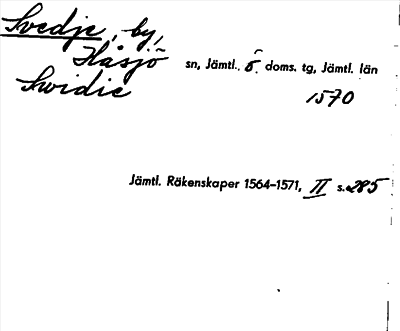 Svedje, by,
Håsjö sn, Jämtl. ö. doms. tg, Jämtl. län
Swidie 1570
Jämtl. Räkenskaper 1564-1571, II s. 285